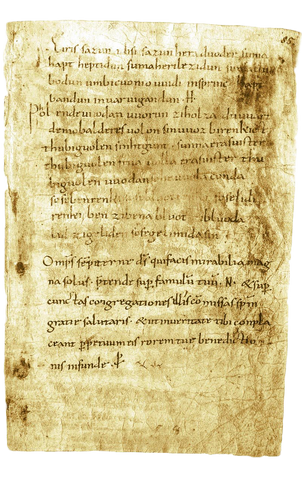 85
Eiris sazun idisi sazun hera duoder suma
hapt heptidun sumaherilezidun sumaclu
bodun umbicuonio uuidi insprinc hapt
bandun inuar uigandun · H ·
Phol ende uuodan uuorun ziholza du uuart
demobalderesuolon sinuuoz birenkict
thubiguolen sinhtgunt · sunnaerasuister
thubiguolen friia uolla erasuister thu
biguolen uuodan sohe uuola conda
sosebenrenki sosebluotrenki soselidi
renki ben zibena bluot zibluoda
lid zigeliden sosegelimida sin ·
Omps sepiterne ds quifacis mirabilia mag
na solus · ptende sup famulu tuu · N · & sup
cunctas congregationes illi comissas spm
gratie salutaris · & ut inueritate tibi compla
ceant ppetuum eis rorem tue benedictio
nis infunde · p